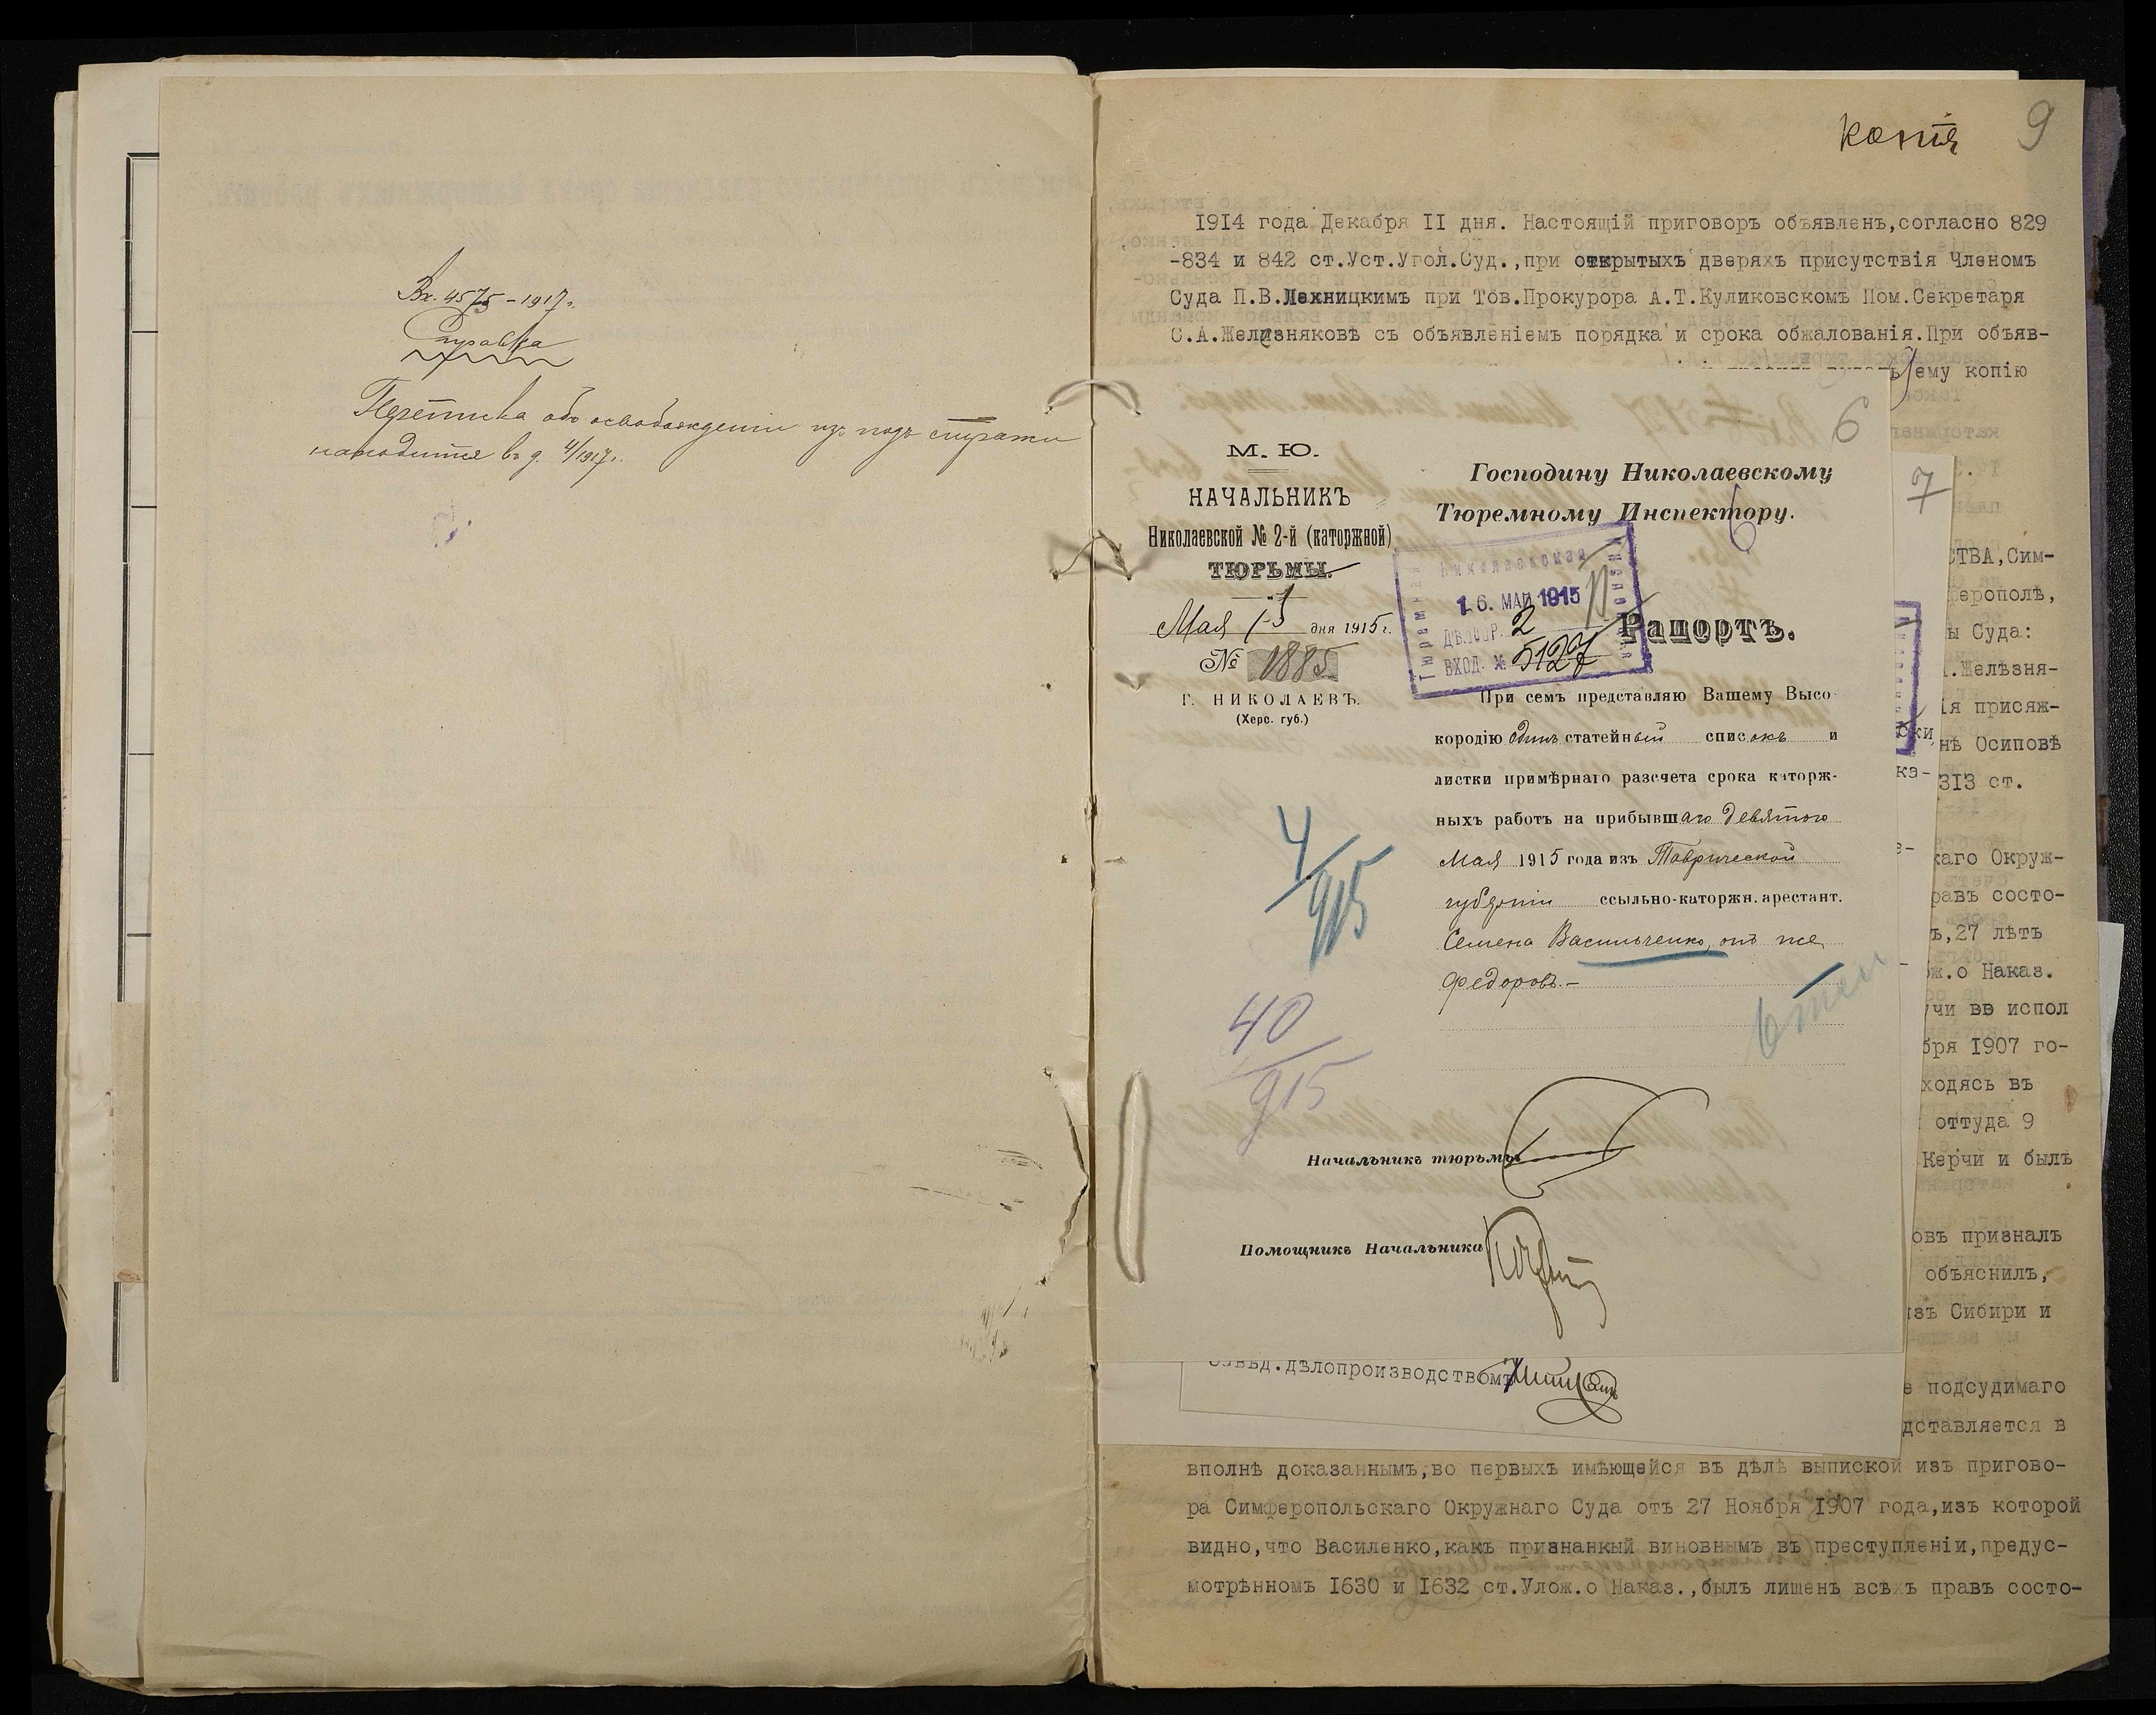 Вх. 4575 – 1917 г.
Справка
Переписка объ освобожденіи изъ подъ стражи
находится въ д. 4/1917 г.
копія
9
1914 года Декабря II дня. Настоящій приговоръ объявленъ,согласно 829
-834 и 842 ст.Уст.Угол.Суд.,при открытыхъ дверяхъ присутствія Членомъ
Суда П.В.Лехницкимъ при Тов.Прокурора А.Т.Куликовскомъ Пом.Секретаря
С.А.Желизняковѣ съ объявленіемъ порядка и срока обжалованія.При объяв-
ему копію
6
М. Ю.
НАЧАЛЬНИКЪ
Николаевской № 2-й (каторжной)
ТЮРЬМЫ.
Мая 15 дня 1915 г.
№ 1885
Г. НИКОЛАЕВЪ.
(Херс. губ.)
Господину Николаевскому
Тюремному Инспектору.
Николаевская
Тюремная
Инспекція
16. МАЙ 1915
ДѢЛОПР. 2
ВХОД. № 5127
Рапортъ.
При семъ представляю Вашему Высо-
кородію одинъ статейный списокъ и
листки примѣрнаго разсчета срока каторж-
ныхъ работъ на прибывшаго девятого
Мая 1915 года изъ Таврической
губерніи ссыльно-каторжн. арестант.
Семена Васильченко, онъ же
Федоровъ.–
4/915
40/915
Начальникъ тюрьмы
Помощникъ Начальника
7
СТВА,Сим-
ферополѣ,
ы Суда:
.Желѣзня-
ія присяж-
нѣ Осиповѣ
313 ст.
ски
ка-
каго Окруж-
равъ состо-
ъ,27 лѣтъ
ож.о Наказ.
учи въ испол
бря 1907 го-
ходясь въ
оттуда 9
Керчи и былъ
овъ призналъ
объяснилъ,
изъ Сибири и
е подсудимаго
дставляется в
Завѣд.дѣлопроизводствомъ
вполнѣ доказаннымъ,во первыхъ имѣющейся въ дѣлѣ выпиской изъ пригово-
ра Симферопольскаго Окружнаго Суда отъ 27 Ноября 1907 года,изъ которой
видно,что Василенко,какъ признанкый виновнымъ въ преступленіи,предус-
мотрѣнномъ I630 и I632 ст.Улож.о Наказ.,былъ лишенъ всѣхъ правъ состо-